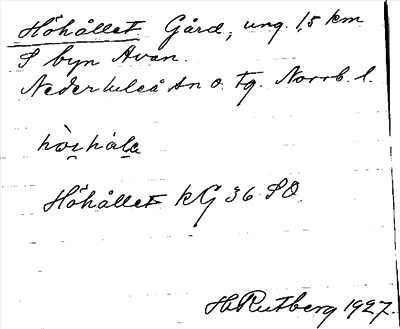 Höhållet Gård, ung. 1,5 km
S byn Avan.
Nederluleå sn o. tg. Norrb. l.
Höhållet kG 36 SO.
H Rutberg 1927.